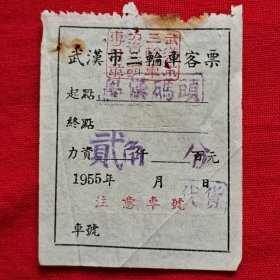 武漢市三輪車客票
起點
粵漢碼頭
終點
力資 貳角 仟 佰元
1955年 月 日
注意車號
車號